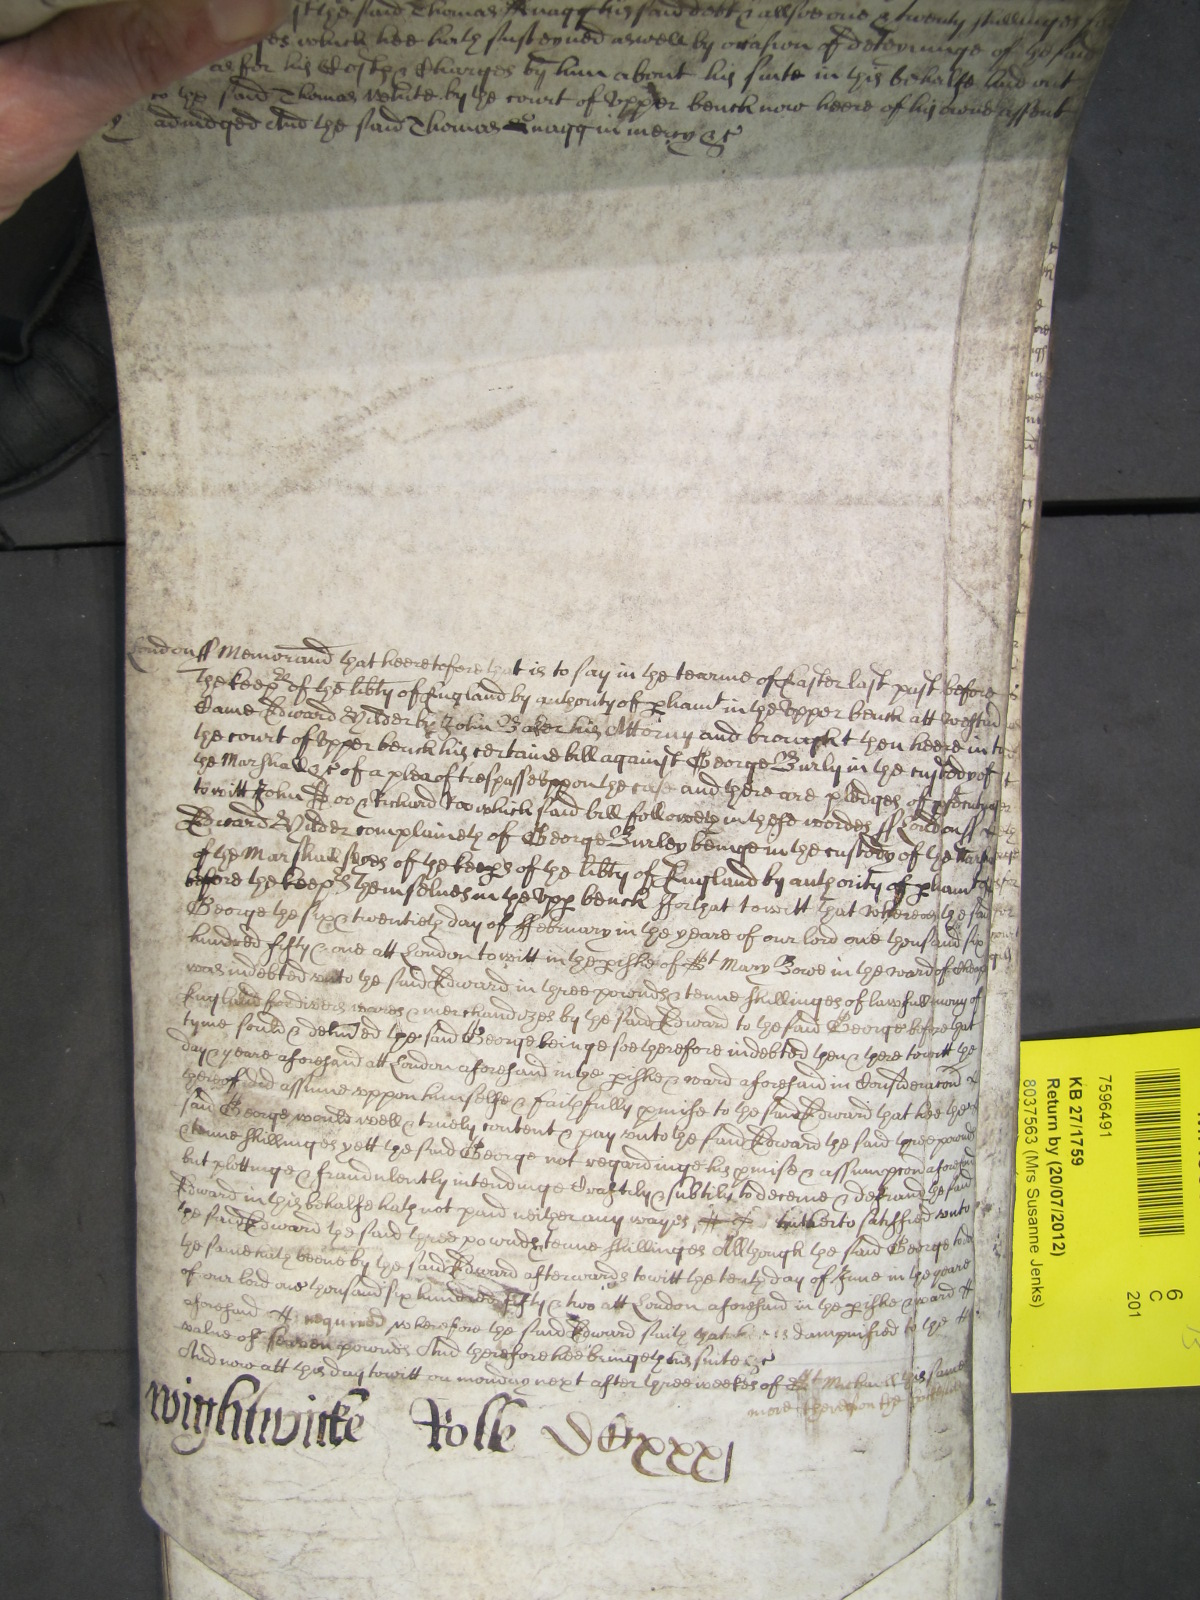 st the said Thomas Knagg his said debt & allsoe one & twenty shillinges
ges which hee hath susteyned aswell by occasion of deteyninge of the said
as for his Costs & Charges by him about his suite in this behalfe laid out
to the said Thomas White by the court of Upper bench now heere of his owne assent
adiudged And the said Thomas Knagg in mercy &c
London ss Memorand that heeretofore that is to say in the tearme of Easter last past before
the keeprs of the libty of England by authority of pliamt in the Upper bench att Westm
Came Edward Wilder by John Baker his Attorny and brought then heere into
the court of Upper bench his certaine bill against George Burly in the custody of
the Marshall &c of a plea of trespasse uppon the case and there are pledges of
to witt John Doo & Richard Roo which said bill followeth in these wordes ss London ss
Edward Wilder complaineth of George Burley beinge in the custody of the
of the Marshalsies of the keeprs of the libty of England by authority of pliamt
before the keeprs themselves in the Upp bench For that to witt that whereas the said
George the six & twentieth day of February in the yeare of our lord one thousand six
hundred fifty & one att London to witt in the pishe of St Mary Bowe in the ward of Cheap
was indebted unto the said Edward in three pounds & tenne shillinges of lawfull mony of
England for divers wares & merchandizes by the said Edward to the said George before that
tyme sould & delivred the said George beinge soe therefore indebted then & there to witt the
day & yeare aforesaid att London aforesaid in the pishe & ward aforesaid in Consideracon
thereof did assume uppon himselfe & faithfully pmise to the said Edward that hee the
said George would well & truely content & pay unto the said Edward the said three pounds
& tenne shillinges yett the said George not regardinge his pmise & assumpcon aforesaid
but plottinge & fraudulently intendinge Craftily & subtily to deceive & defraud the said
Edward in this behalfe hath not paid neither any wayes hitherto satisfied unto
the said Edward the said three pounds tenne shillinges Although the said George to doe
the same hath beene by the said Edward afterwards to witt the tenth day of June in the yeare
of our lord one thousand six hundred fifty & two att London aforesaid in the pishe & ward
aforesaid required wherefore the said Edward saith that hee is dampnified to the
value of seaven pounds And therefore hee bringeth his suite &c
And now att this day to witt on monday next after three weekes of St Michaell this same
more thereon the
Wightwicke Rolle DCxxxj
7596491
KB 27/1759
Return by (20/07/2012)
8037563 (Mrs Susanne Jenks)
6
C
201